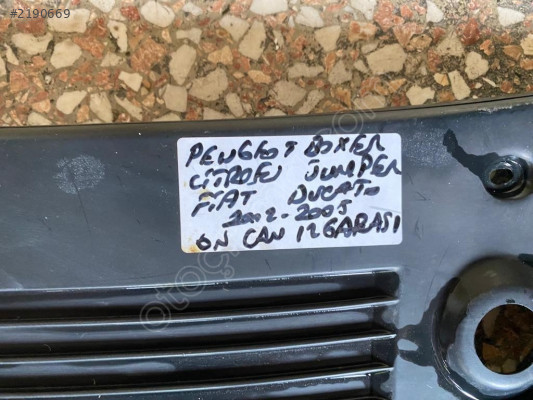 #2190669
PEUGEOT BOXER
CİTROEN JUMPER
FIAT DUCATO
2002-2005
ON CAM IZGARASI